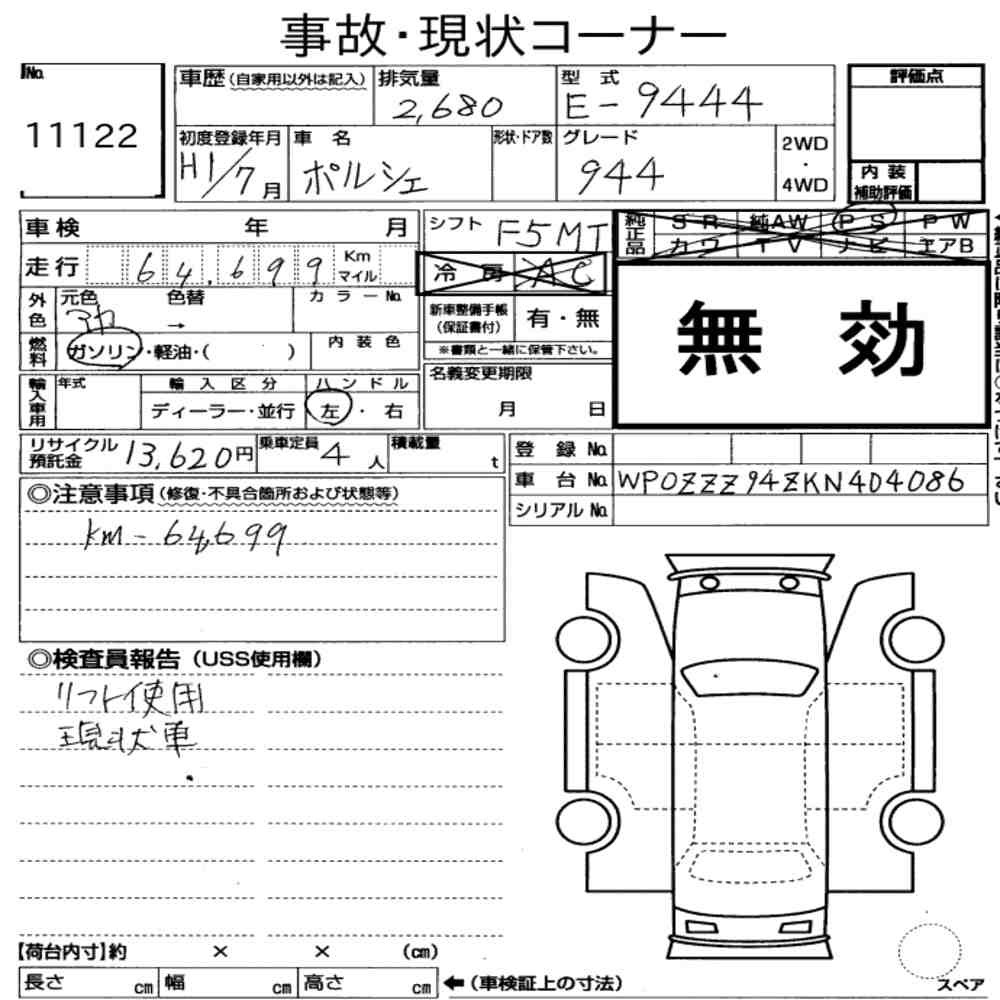 事故・現状コーナー
No. 11122
車歴(自家用以外は記入)
排気量 2,680
型式 E-9444
評価点
初度登録年月 H1/7月
車名 ポルシェ
形状・ドア数
グレード 944
2WD・4WD
内装補助評価
車検 年 月
シフト F5MT
純正品 SR 純AW PS PW
カワ TV ナビ エアB
走行 64,699 Km マイル
冷房 AC
外色 元色 色替 → カラーNo.
新車整備手帳(保証書付) 有・無
※書類と一緒に保管下さい。
無効
燃料 ガソリン・軽油・( )
内装色
名義変更期限 月 日
輸入車用 年式 輸入区分 ハンドル
ディーラー・並行 左・右
リサイクル預託金 13,620円
乗車定員 4人
積載量 t
登録No.
車台No. WP0ZZZ94ZKN404086
シリアルNo.
◎注意事項(修復・不具合箇所および状態等)
km-64,699
◎検査員報告(USS使用欄)
リフト使用
現状車
【荷台内寸】約 × × (cm)
長さ cm 幅 cm 高さ cm ←(車検証上の寸法)
スペア